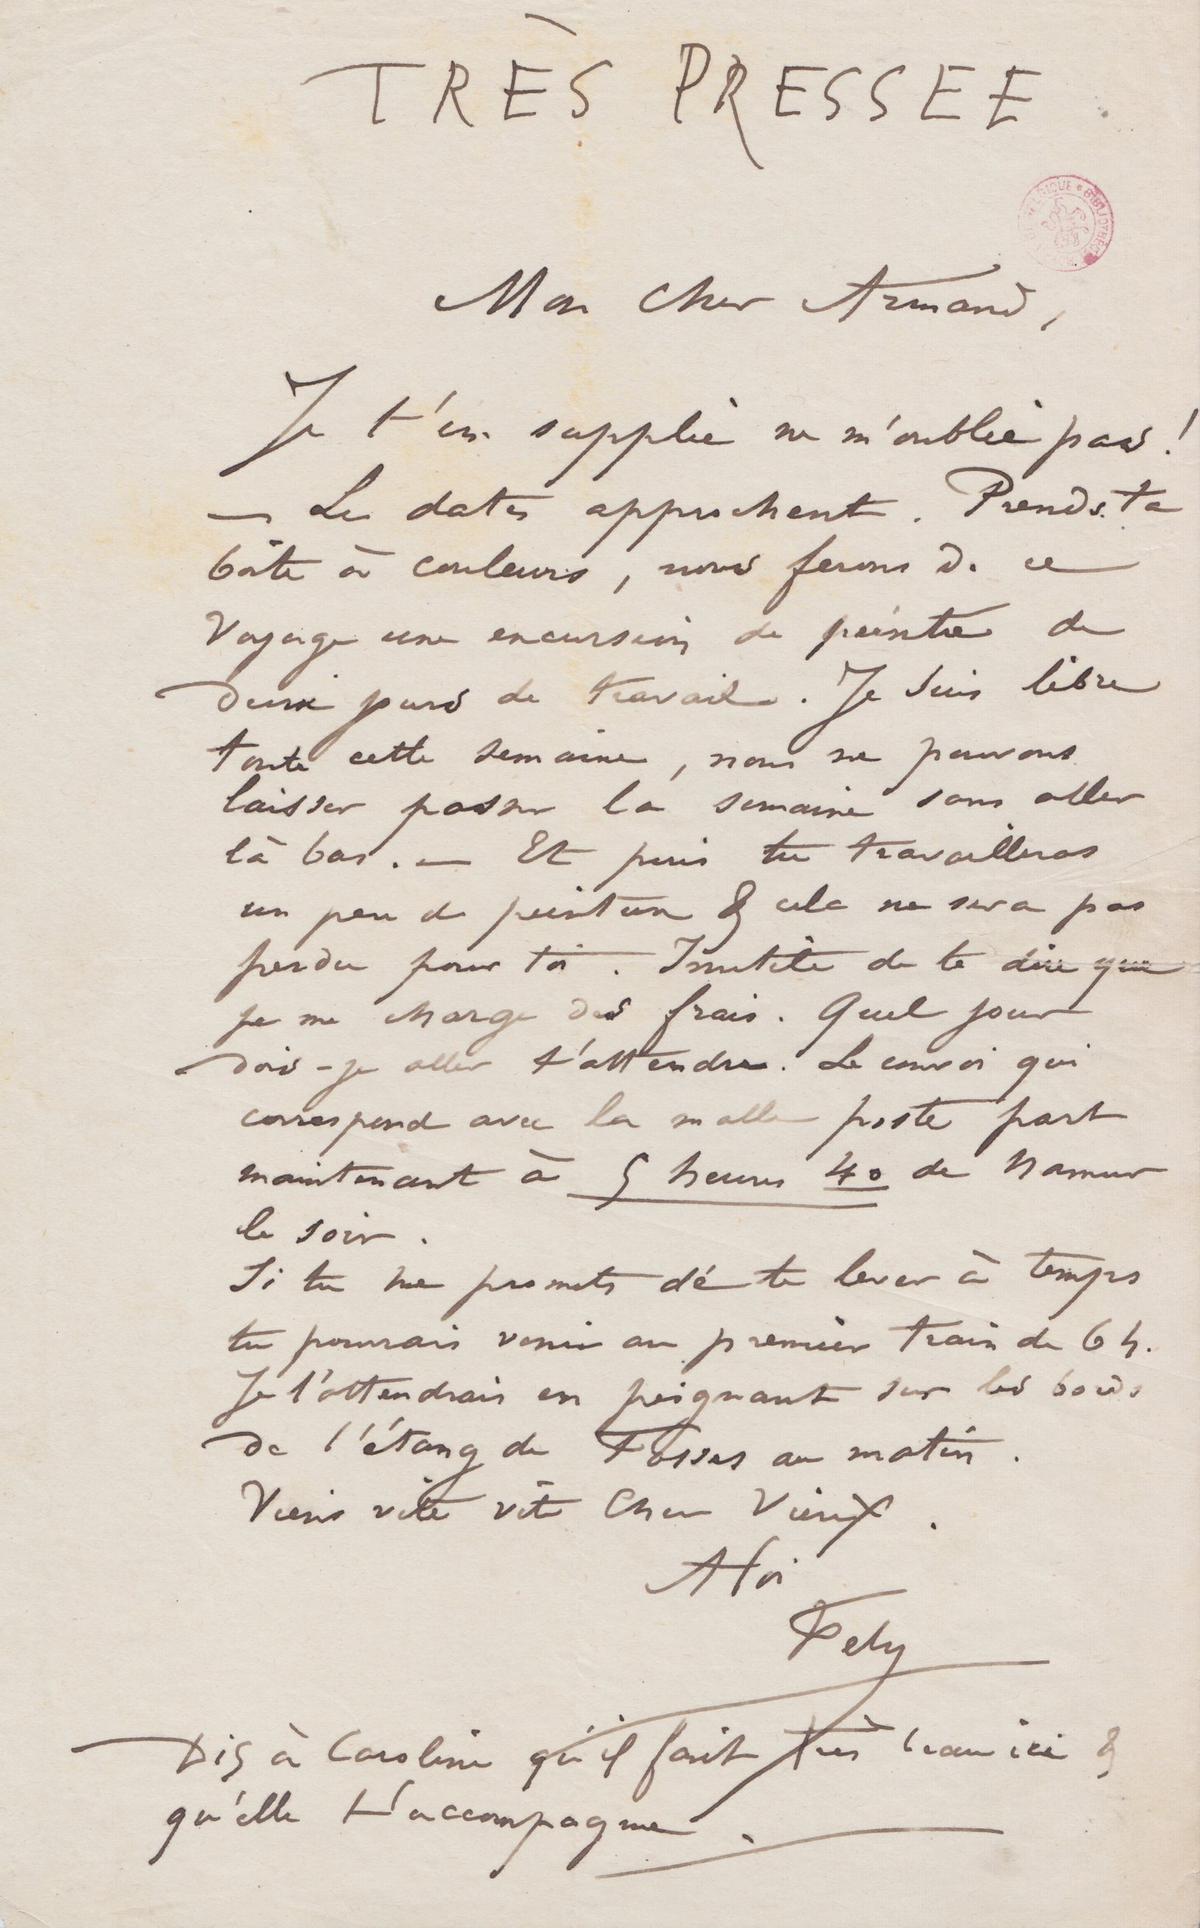 TRÈS PRESSEE
Mon cher Armand,
Je t'en supplie ne m'oublie pas !
— Les dates approchent. Prends ta
boîte à couleurs, nous ferons de ce
voyage une excursion de peintre de
deux jours de travail. Je suis libre
toute cette semaine, nous ne pouvons
laisser passer la semaine sans aller
là bas. — Et puis tu travailleras
un peu de peinture & cela ne sera pas
perdu pour toi. Inutile de te dire que
je me charge des frais. Quel jour
dois-je aller t'attendre. Le convoi qui
correspond avec la malle poste part
maintenant à 5 heures 40 de Namur
le soir.
Si tu me promets dé te lever à temps
tu pourrais venir au premier train de 6 h.
Je t'attendrais en peignant sur les bords
de l'étang de Fosses au matin.
Viens vite vite cher Vieux.
A toi
Fely
Dis à Caroline qu'il fait très beau ici &
qu'elle t'accompagne.
BIBLIOTHÈ